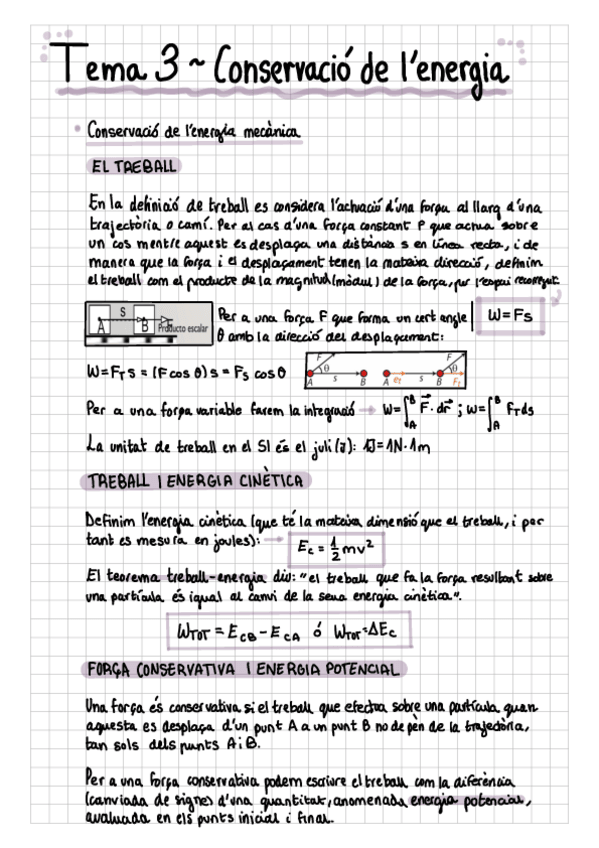 Tema 3 ~ Conservació de l'energia
• Conservació de l'energia mecànica
EL TREBALL
En la definició de treball es considera l'actuació d'una força al llarg d'una
trajectòria o camí. Per al cas d'una força constant F que actua sobre
un cos mentre aquest es desplaça una distància s en línea recta, i de
manera que la força i el desplaçament tenen la mateixa direcció, definim
el treball com el producte de la magnitud (mòdul) de la força, per l'espai recorregut
W = Fs
S
A B Producto escalar
Per a una força F que forma un cert angle
θ amb la direcció del desplaçament:
W = F_T s = (F cos θ) s = F_s cos θ
F θ A s B A e_t s B F θ F_t
Per a una força variable farem la integració → W = ∫_A^B F⃗ · dr⃗ ; W = ∫_A^B F_T ds
La unitat de treball en el SI és el juli (J): 1J = 1N · 1m
TREBALL I ENERGIA CINÈTICA
Definim l'energia cinètica (que té la mateixa dimensió que el treball, i per
tant es mesura en joules): → E_c = 1/2 mv²
El teorema treball-energia diu: "el treball que fa la força resultant sobre
una partícula és igual al canvi de la seua energia cinètica".
W_TOT = E_CB - E_CA ó W_TOT = ΔE_C
FORÇA CONSERVATIVA I ENERGIA POTENCIAL
Una força és conservativa si el treball que efectua sobre una partícula quan
aquesta es desplaça d'un punt A a un punt B no depèn de la trajectòria,
tan sols dels punts A i B.
Per a una força conservativa podem escriure el treball com la diferència
(canviada de signe) d'una quantitat, anomenada energia potencial,
avaluada en els punts inicial i final.